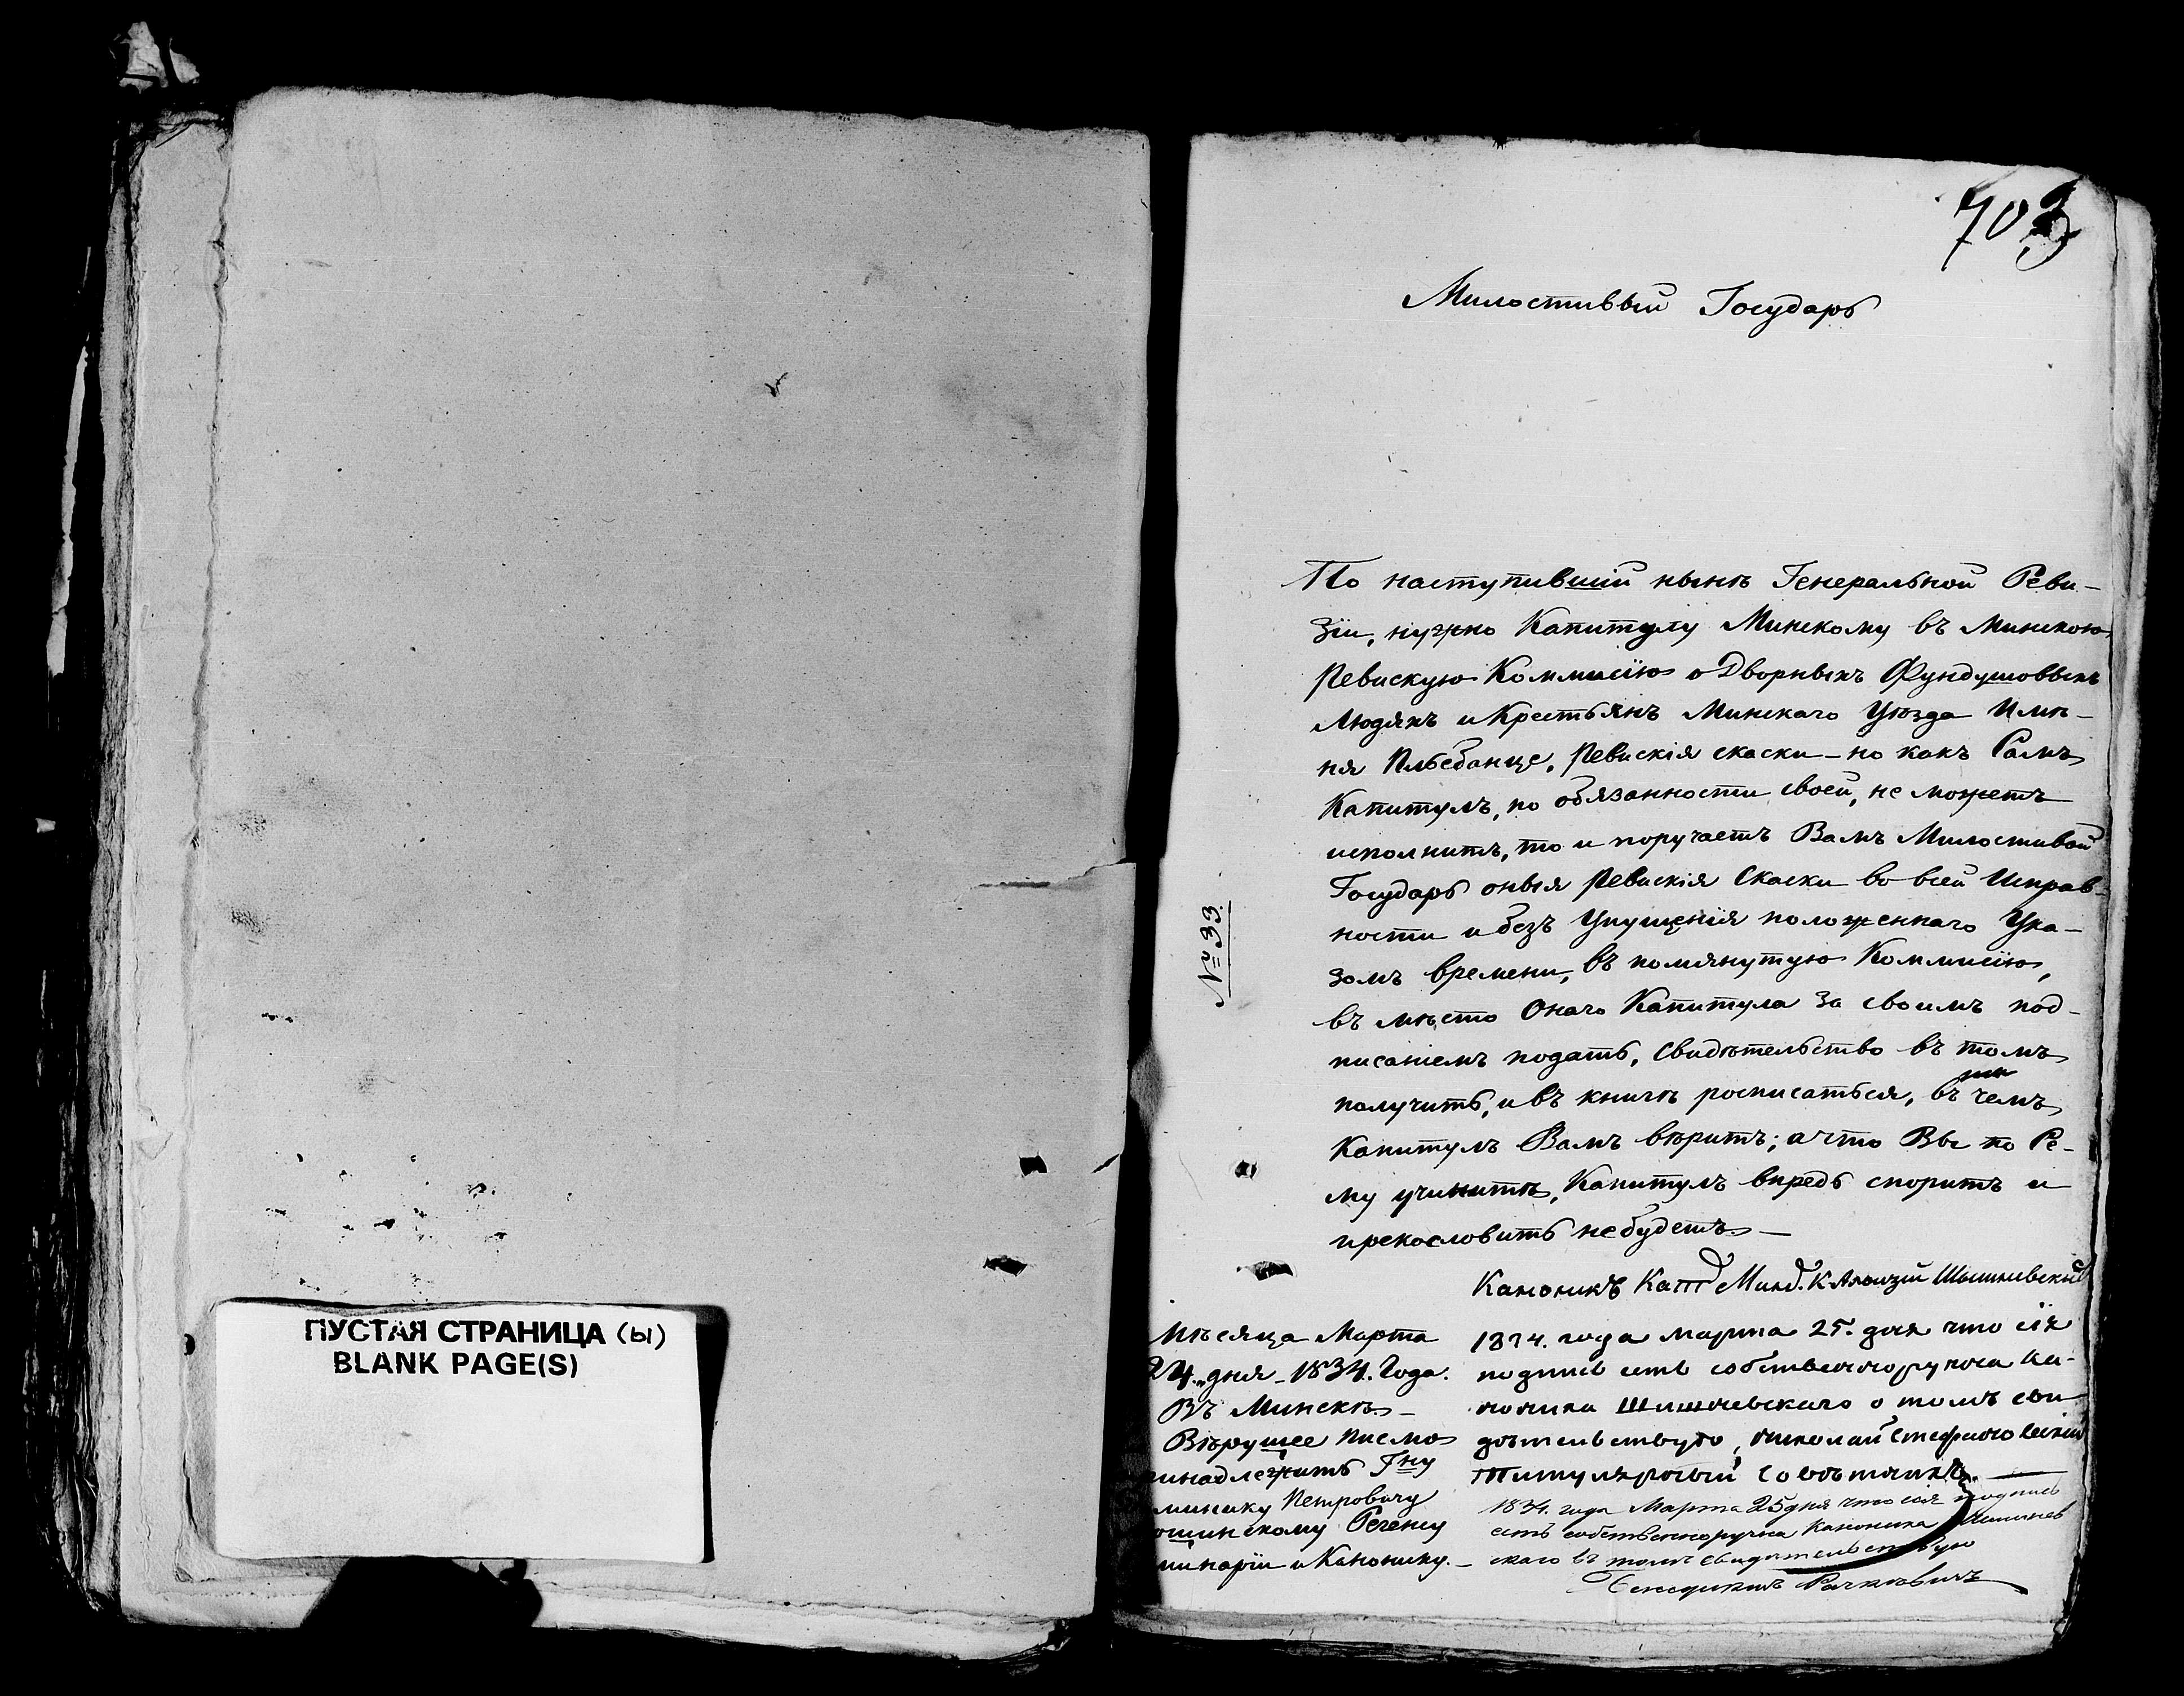 ПУСТАЯ СТРАНИЦА (ы)
BLANK PAGE(S)
703
Милостивый Государь
По наступившій нынѣ Генеральной Реви-
зіи, нужно Капитулу Минскому въ Минскою
Ревискую Коммисію о Дворныхъ Фундушовыхъ
Людяхъ и Крестьянъ Минскаго Уѣзда Имѣ-
ня Пльебанце, Ревискія скаски - но какъ Самъ
Капитулъ, по обязанности своей, не можетъ
исполнитъ, то и поручаетъ Вамъ Милостивой
Государь оныя Ревискія Скаски во всей Исправ-
ности и безъ Упущенія положеннаго Ука-
зомъ времени, въ помянутую Коммисію,
въ мѣсто Онаго Капитула за своимъ под-
писаніемъ подать, свидѣтельство въ томъ
получить, и въ книгѣ росписаться, въ чемъ
Капитулъ Вамъ вѣритъ; а что Вы по Се-
му учините, Капитулъ впредь споритъ и
прекословить не будетъ. —
№ 33.
Каноникъ Кат Минд. К Алоизій Шышневскій
Мѣсяца Марта
24. дня 1834. Года.
Въ Минскѣ —
Вѣрущее писмо
инадлежитъ Гну
минику Петровичу
ошинскому Регенсу
минаріи и Канонику. —
1834. года марта 25. дня что сія
подпись есть собственноручна Ка-
ноника Шишневскаго о томъ сви
дѣтельствую, Николай Стефановскій
Титулярный Совѣтникъ. —
1834. года Марта 25 дня что сія подпись
есть собственноручна Каноника Шишнев
скаго въ томъ свидѣтельствую
Бенедиктъ Рачкевичъ